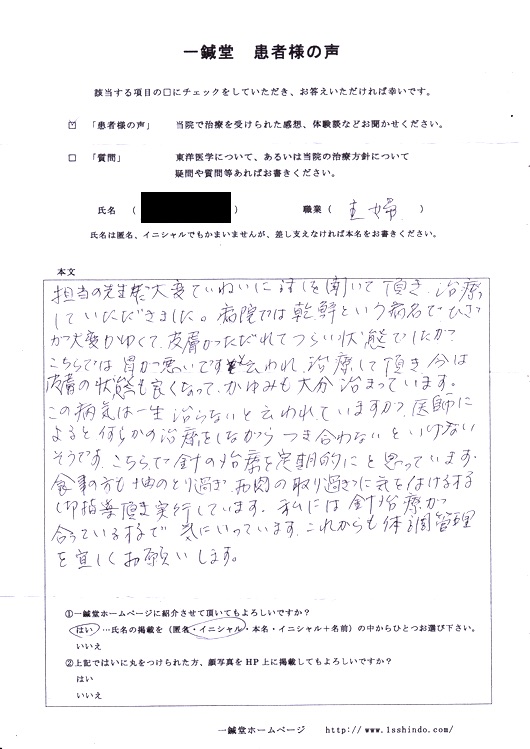 一鍼堂　患者様の声
該当する項目の□にチェックをしていただき、お答えいただければ幸いです。
☑ 「患者様の声」 当院で治療を受けられた感想、体験談などお聞かせください。
□ 「質問」 東洋医学について、あるいは当院の治療方針について
疑問や質問等あればお書きください。
氏名 （ ） 職業（ 主婦 ）
氏名は匿名、イニシャルでもかまいませんが、差し支えなければ本名をお書きください。
本文
担当の先生が大変ていねいに話しを聞いて頂き、治療
していただきました。病院では乾癬という病名でひざ
が大変かゆくて、皮膚がただれてつらい状態でしたが
こちらでは胃が悪いですと云われ、治療して頂き、今は
皮膚の状態も良くなって、かゆみも大分治まっています。
この病気は一生治らないと云われていますが、医師に
よると何らかの治療をしながらつき合わないといけない
そうです。こちらで針の治療を定期的にと思っています。
食事の方も油のとり過ぎ、お肉の取り過ぎに気を付ける様
ご指導頂き実行しています。私には針治療が
合っている様で気にいっています。これからも体調管理
を宜しくお願いします。
①一鍼堂ホームページに紹介させて頂いてもよろしいですか？
はい…氏名の掲載を（匿名・イニシャル・本名・イニシャル＋名前）の中からひとつお選び下さい。
いいえ
②上記ではいに丸をつけられた方、顔写真をHP上に掲載してもよろしいですか？
はい
いいえ
一鍼堂ホームページ http://www.1sshindo.com/